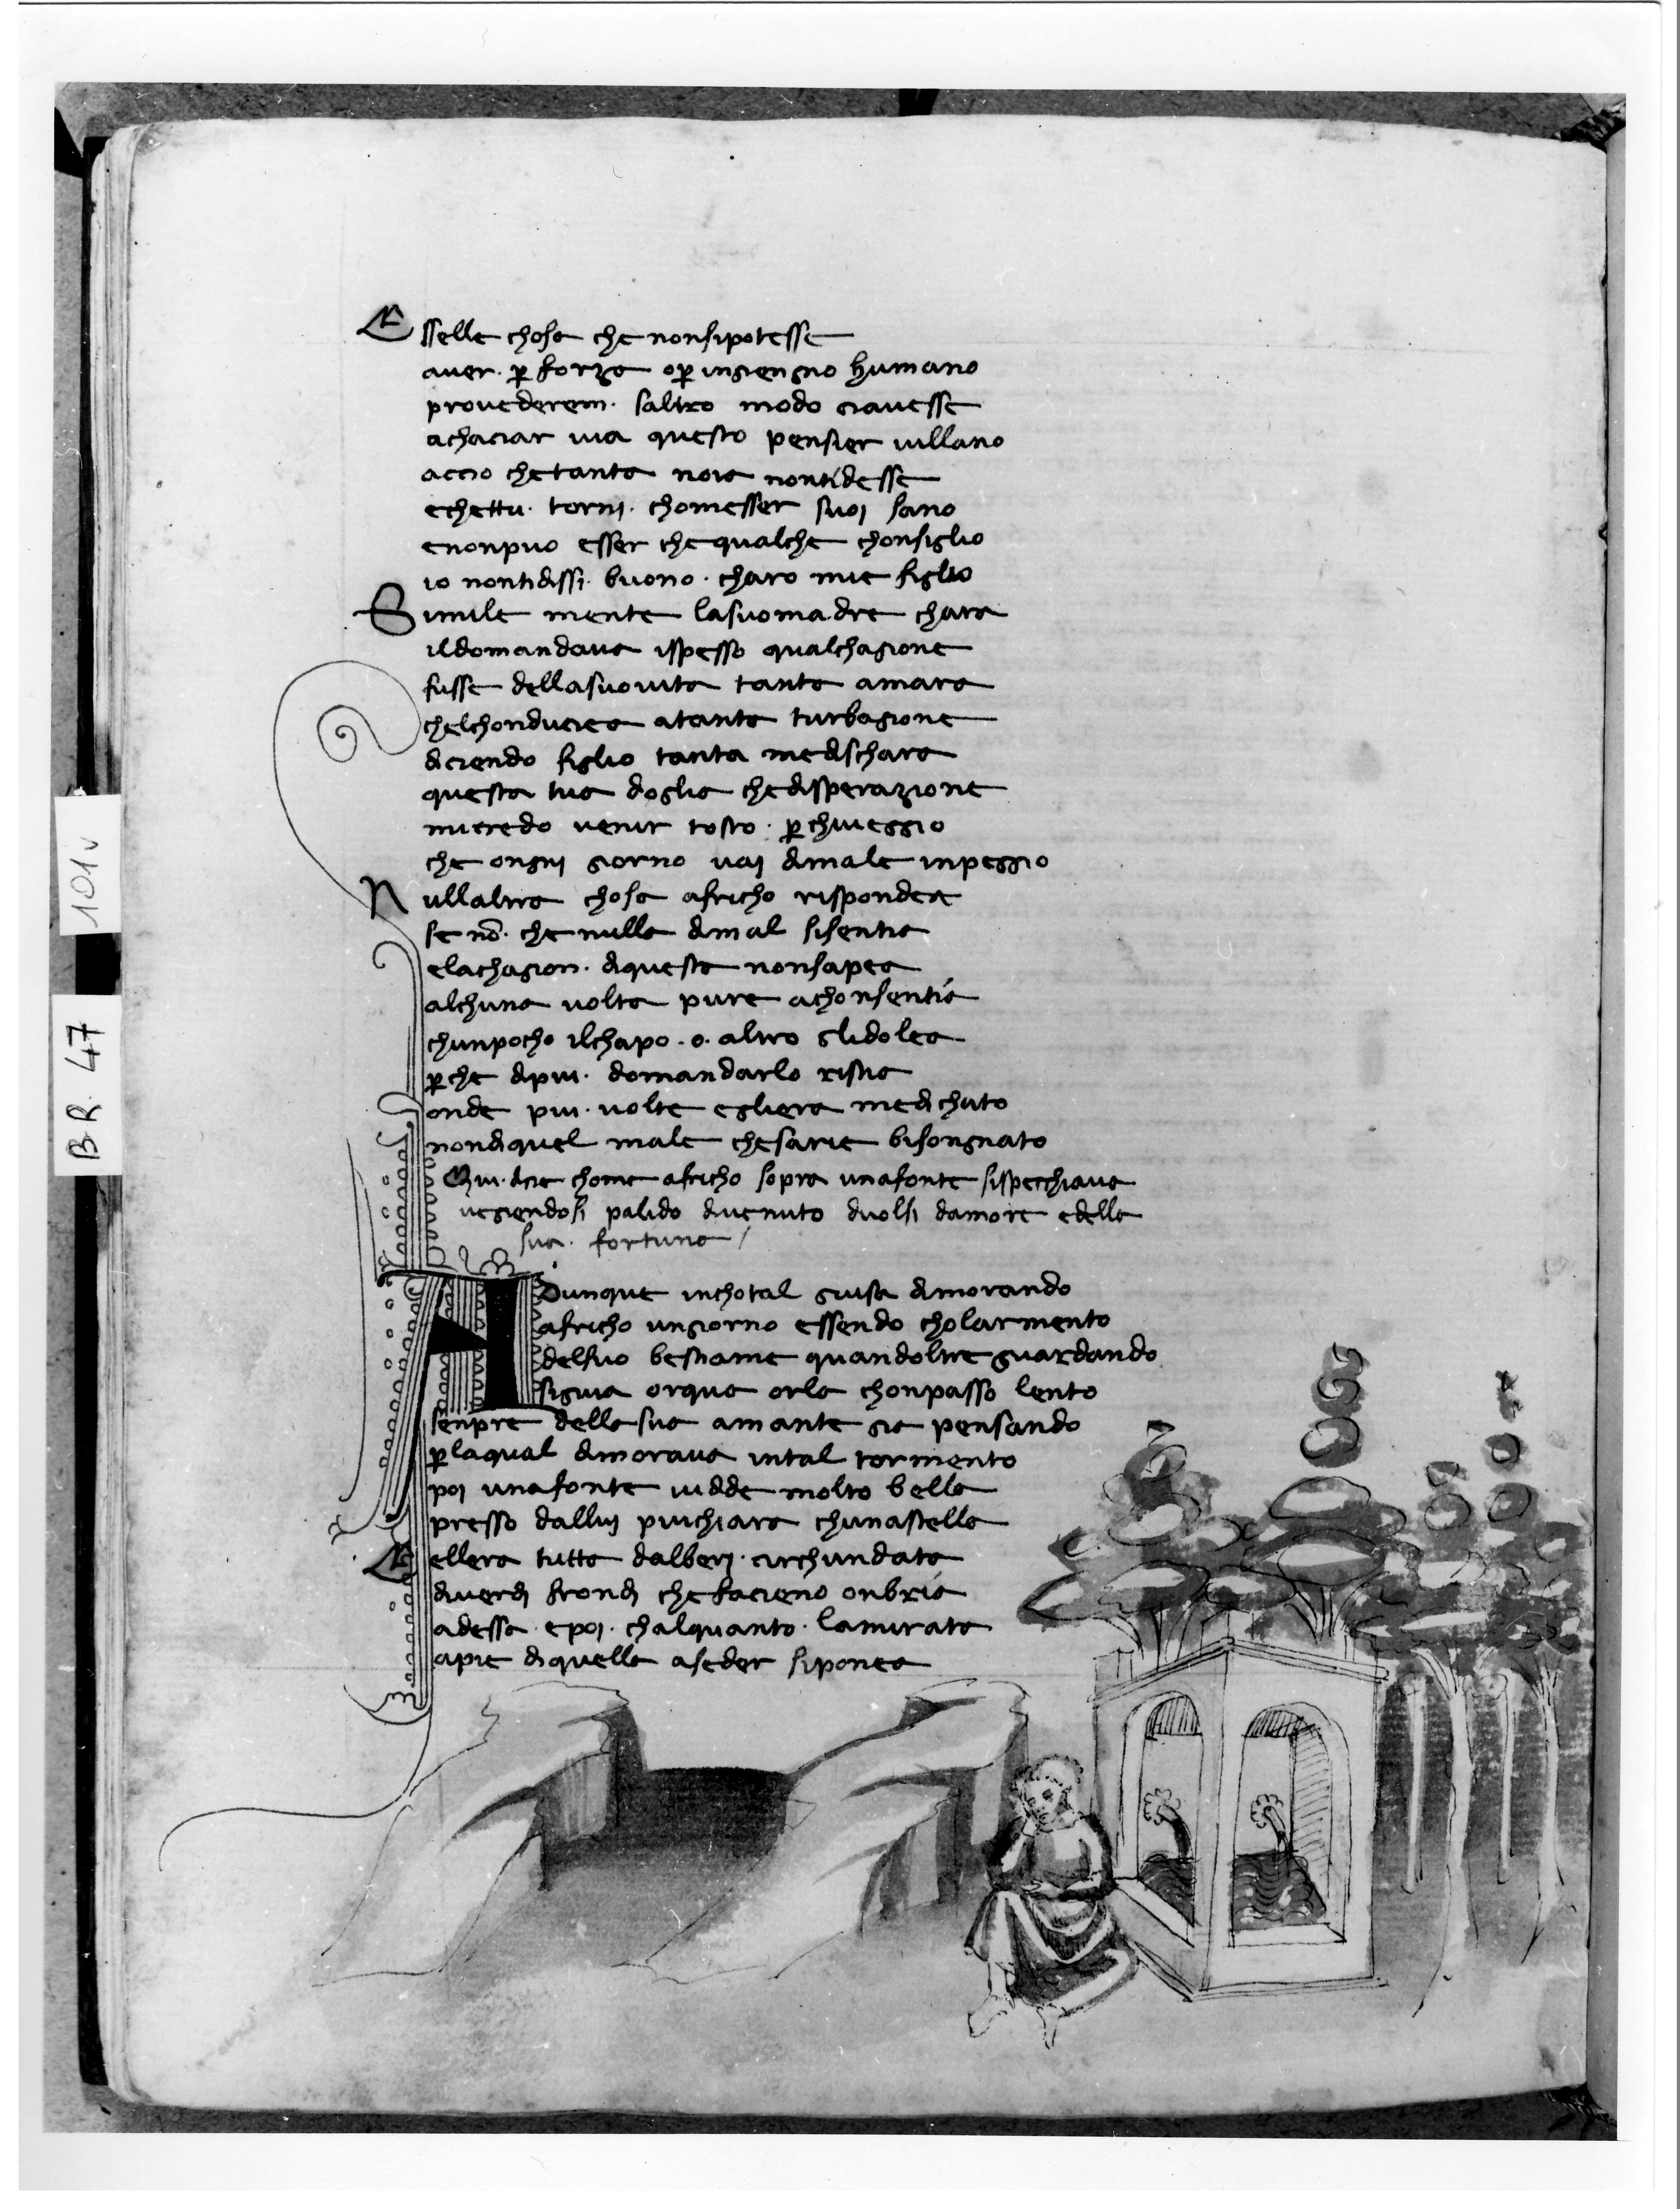 Esselle chosa che nonsipotesse
aver. ꝑ forza oꝑ ingiengno humano
provederem. saltro modo ciavesse
achaciar via questo pensier villano
accio chetanta noia nontidesse
echettu. tornj. chomesser suoj sano
enonpuo esser chequalche chonsiglio
io nontidissi. buono. charo mie figlio
Simile mente lasuomadre chara
ildomandava ispesso qualchagione
fusse dellasuovita tanta amara
chelchonduciea atanta turbagione
diciendo figlio tanta medischara
questa tua doglia chedisperazione
micredo venir tosto. ꝑchiveggio
che ongnj giorno vaj dimale inpeggio
Nullaltra chosa africho rispondea
se nõ. che nulla dimal sisentia
elachagion. diquesta nonsapea
alchuna volta pure achonsentia
chunpocho ilchapo. o. altro glidolea
ꝑche dipiu. domandarlo ristia
onde piu. volte egliera medichato
nondiquel male chesarie bisongnato
Qui. dicie chome africho sopra unafonte sispecchiava
vegiendosi palido divenuto duolsi damore edella
sua. fortuna
Adunque inchotal guisa dimorando
africho ungiorno essendo cholarmento
delsuo bestiame quandoltre guardando
sigiva orqua orla chonpasso lento
senpre della sua amante gia pensando
ꝑlaqual dimorava intal tormento
poj unafonte vidde molto bella
presso dalluj piuchiara chunastella
Ellera tutta dalberj. circhundata
diverdj frondj che facieno onbria
adessa. epoj. chalquanto. lamirata
apie diquella aseder siponea
101v
BR. 47